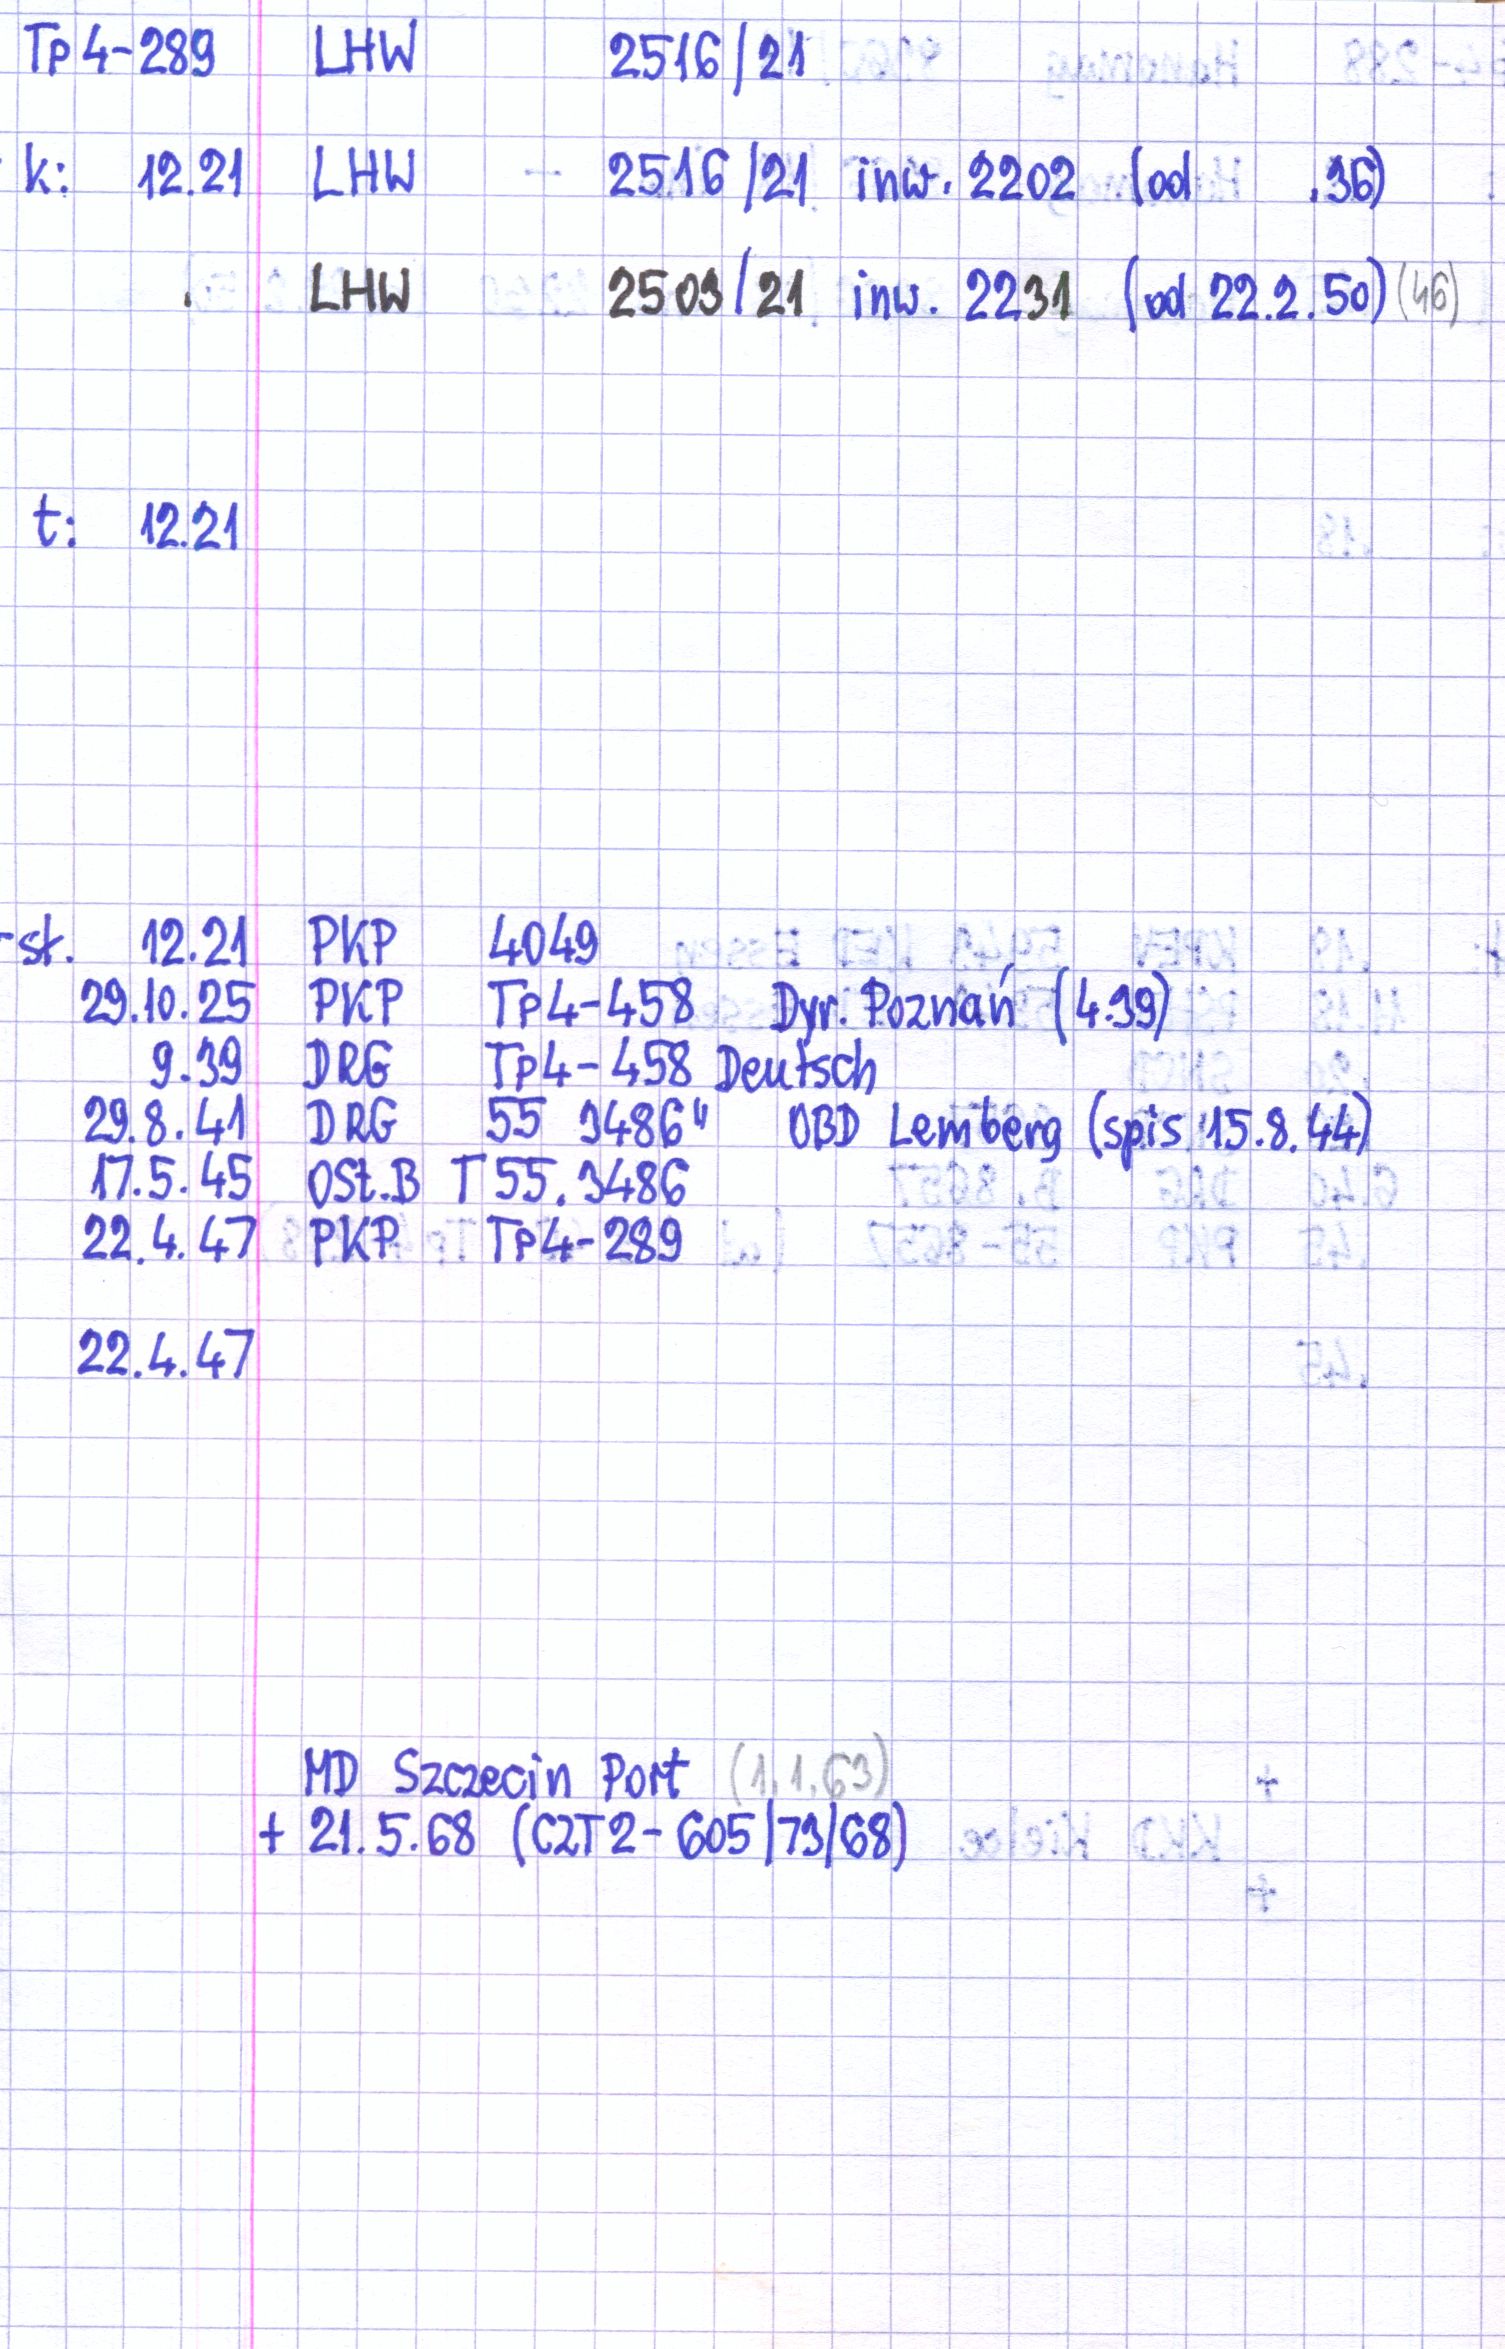 Tp4-289 LHW 2516/21
k: 12.21 LHW - 2516/21 inw. 2202 (od .36)
. LHW 2503/21 inw. 2231 (od 22.2.50) (46)
t: 12.21
st. 12.21 PKP 4049
29.10.25 PKP Tp4-458 Dyr. Poznań (4.39)
9.39 DRG Tp4-458 Deutsch
29.8.41 DRG 55 3486" OBD Lemberg (spis 15.8.44)
17.5.45 OSt.B T 55.3486
22.4.47 PKP Tp4-289
22.4.47
MD Szczecin Port (1.1.63)
+ 21.5.68 (CZT2-605/73/68)